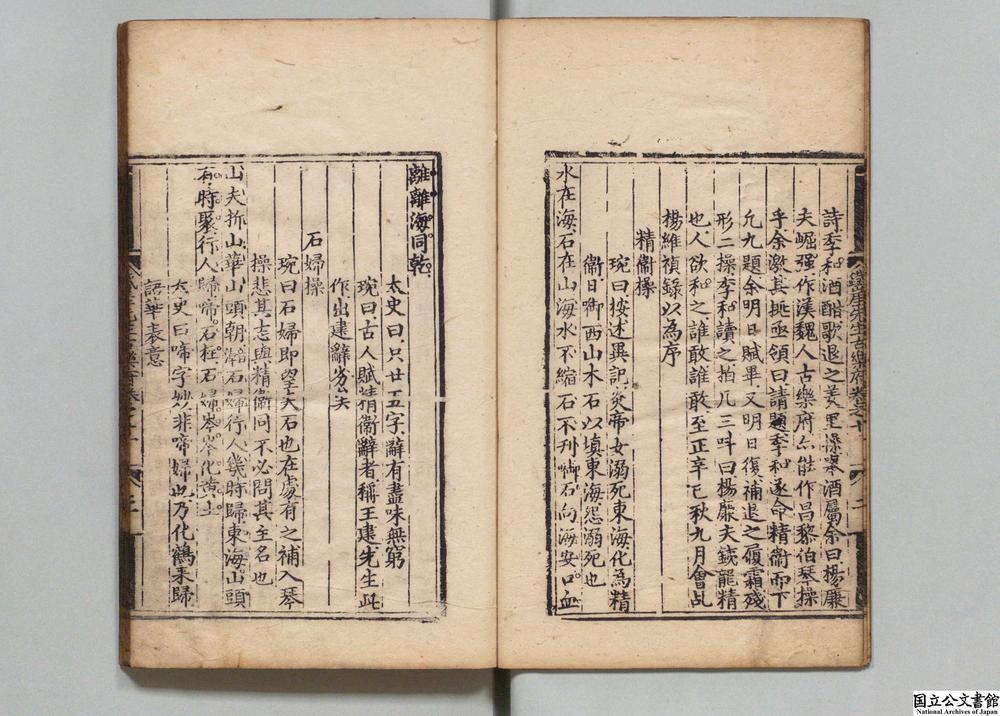 詩季和酒酣歌退之羑里操畢酒屬余曰楊廉
夫崛强作漢魏人古樂府亦能作昌黎伯琴操
乎余激其挑亟領曰請題季和遂命精衛而下
凢九題余明日賦畢又明日復補退之履霜殘
形二操季和讀之拍几三呌曰楊廉夫鉄龍精
也人欲和之誰敢誰敢至正辛巳秋九月會乩
楊維禎録以為序
精衞操
琬曰按述異記炎帝女溺死東海化為精
衞日啣西山木石以填東海怨溺死也
水在海石在山海水不縮石不刋啣石向海安口血
離離海同乾
太史曰只廿五字辭有盡味無窮
琬曰古人賦精衞辭者稱王建先生此
作出建辭労夫
石婦操
琬曰石婦即望夫石也在處有之補入琴
操悲其志與精衞同不必問其主名也
山夫折山華山頭朝石婦行人幾時歸東海山頭
有時聚行人歸啼石在石婦岑岑化黄土
太史曰啼字妙非啼婦也乃化鶴来歸
語華表意
鐵崖先生古樂府卷之十
二
三
国立公文書館
National Archives of Japan